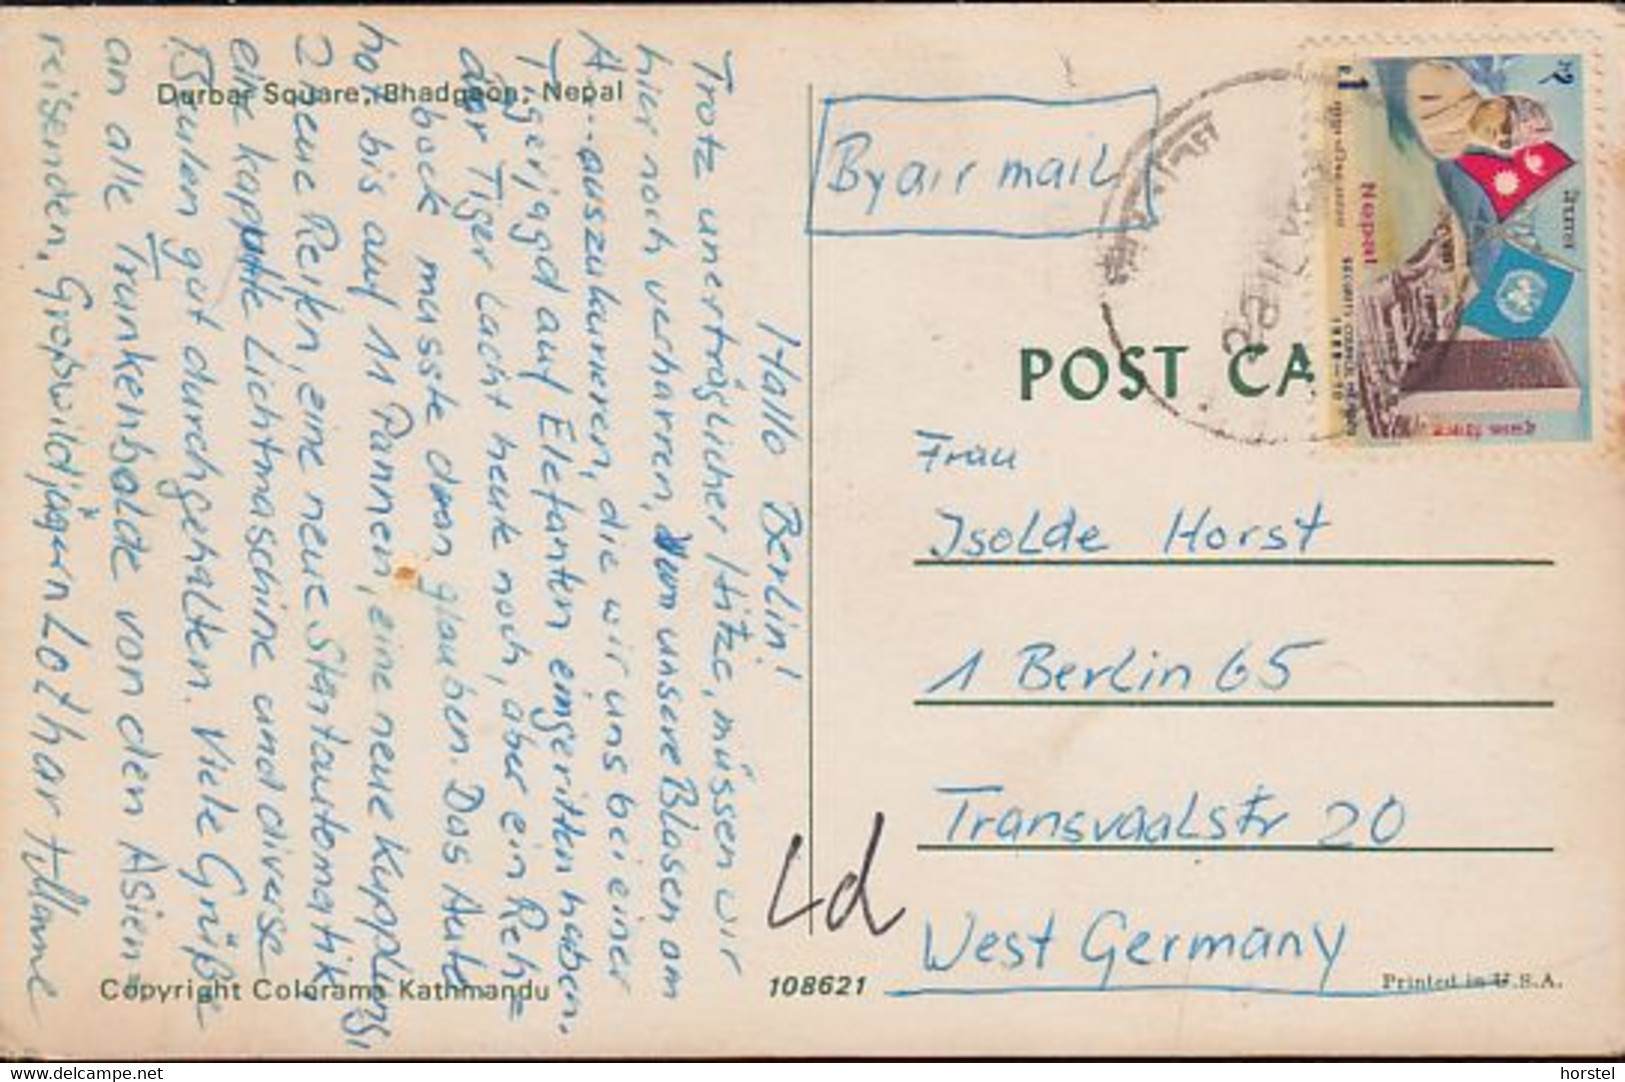 Durbar Square, Bhadgaon, Nepal
Hallo Berlin!
Trotz unerträglicher Hitze, müssen wir
hier noch verharren, um unsere Blasen am
A... auszukurieren, die wir uns bei einer
Tigerjagd auf Elefanten eingeritten haben.
der Tiger lacht heute noch, aber ein Reh=
bock musste dran glauben. Das Auto
hat bis auf 11 Pannen, eine neue Kupplung,
2 neue Reifen, eine neue Startautomatik
eine kaputte Lichtmaschine und diverse
Beulen gut durchgehalten. Viele Grüße
an alle Trunkenbolde von den Asien=
reisenden, Großwildjägern Lothar +
Copyright Colorama Kathmandu
108621
By air mail
POST CA
Frau
Isolde Horst
1 Berlin 65
Transvaalstr 20
West Germany
Ld
Printed in U.S.A.
Nepal
R. 1
horstel
www.delcampe.net